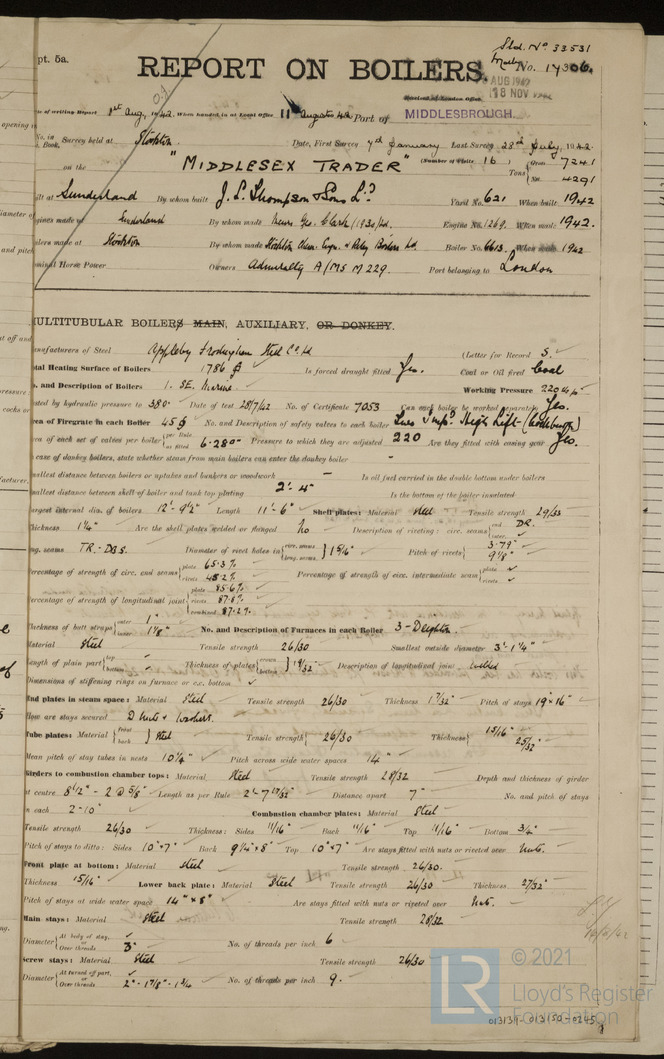 Sld. No 33531
pt. 5a.
No. 17306.
REPORT ON BOILERS.
AUG 1942
18 NOV 1942
Received at London Office
Date of writing Report 8th Aug, 1942. When handed in at Local Office 11th August 42 Port of MIDDLESBROUGH.
No. in Book. Survey held at Stockton Date, First Survey 7th January Last Survey 28th July, 1942
on the "MIDDLESEX TRADER" (Number of Visits 16) Tons Gross 7241 Net 4291
Built at Sunderland By whom built J. L. Thompson & Sons Ld. Yard No. 621 When built 1942
Engines made at Sunderland By whom made Messrs Geo. Clark (1938) Ld. Engine No. 1269. When made 1942.
Boilers made at Stockton By whom made Stockton Chem. Engrs. & Riley Boilers Ld Boiler No. 6613. When made 1942
Nominal Horse Power Owners Admiralty A/MS M 229. Port belonging to London
MULTITUBULAR BOILERS MAIN, AUXILIARY, OR DONKEY.
Manufacturers of Steel Appleby Frodingham Steel Co. Ld (Letter for Record S.
Total Heating Surface of Boilers 1786 Is forced draught fitted Yes. Coal or Oil fired Coal
No. and Description of Boilers 1. SE. Marine. Working Pressure 220
Tested by hydraulic pressure to 380 Date of test 28/7/42 No. of Certificate 7053 Can each boiler be worked separately Yes.
Area of Firegrate in each Boiler 45 No. and Description of safety valves to each boiler High Lift (Cockburn)
Area of each set of valves per boiler per Rule as fitted 6.280 Pressure to which they are adjusted 220 Are they fitted with easing gear Yes.
In case of donkey boilers, state whether steam from main boilers can enter the donkey boiler -
Smallest distance between boilers or uptakes and bunkers or woodwork - Is oil fuel carried in the double bottom under boilers
Smallest distance between shell of boiler and tank top plating 2'-4" Is the bottom of the boiler insulated
Largest internal dia. of boilers 12'-9½" Length 11'-6" Shell plates: Material steel Tensile strength 29/33
Thickness 1¼" Are the shell plates welded or flanged No Description of riveting: circ. seams end DR. inter.
long. seams TR. DBS. Diameter of rivet holes in circ. seams long. seams 1 5/16" Pitch of rivets 3.79" 9 1/8"
Percentage of strength of circ. end seams plate 65.3% rivets 45.2% Percentage of strength of circ. intermediate seam plate rivets
Percentage of strength of longitudinal joint plate 85.6% rivets 87.8% combined 87.2%
Thickness of butt straps outer 1" inner 1 1/8" No. and Description of Furnaces in each Boiler 3 - Deighton.
Material steel Tensile strength 26/30 Smallest outside diameter 3'-1¼"
Length of plain part top bottom Thickness of plates crown bottom 19/32 Description of longitudinal joint welded
Dimensions of stiffening rings on furnace or c.c. bottom
End plates in steam space: Material Steel Tensile strength 26/30 Thickness 1 7/32" Pitch of stays 19" x 16"
How are stays secured D Nuts & Washers.
Tube plates: Material front back steel Tensile strength 26/30 Thickness 15/16" 25/32"
Mean pitch of stay tubes in nests 10¼" Pitch across wide water spaces 14"
Girders to combustion chamber tops: Material Steel Tensile strength 28/32 Depth and thickness of girder
at centre 8½" - 2 @ 5/8" Length as per Rule 2'-7 17/32" Distance apart 7" No. and pitch of stays
in each 2-10" Combustion chamber plates: Material Steel
Tensile strength 26/30 Thickness: Sides 11/16" Back 11/16" Top 11/16" Bottom 3/4"
Pitch of stays to ditto: Sides 10" x 7" Back 9¼" x 8" Top 10" x 7" Are stays fitted with nuts or riveted over Nuts.
Front plate at bottom: Material steel Tensile strength 26/30.
Thickness 15/16" Lower back plate: Material Steel Tensile strength 26/30 Thickness 27/32"
Pitch of stays at wide water space 14" x 8" Are stays fitted with nuts or riveted over Nut.
Main stays: Material Steel Tensile strength 28/32
Diameter At body of stay, or Over threads 3" No. of threads per inch 6
Screw stays: Material Steel Tensile strength 26/30
Diameter At turned off part, or Over threads 2" - 1 7/8" - 1 3/4 No. of threads per inch 9.
LR
© 2021
Lloyd's Register
Foundation
013139-013150-0245